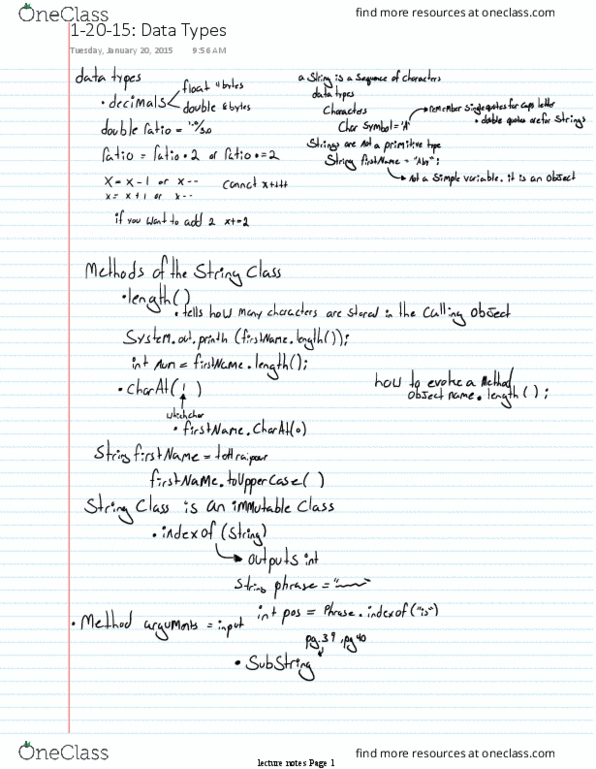 OneClass
find more resources at oneclass.com
1-20-15: Data Types
Tuesday, January 20, 2015 9:56 AM
data types
• decimals
float 4 bytes
double 8 bytes
double ratio = 1.0/3.0
ratio = ratio * 2 or ratio *= 2
X = X - 1 or X--
X = X + 1 or X--
cannot x++
if you want to add 2 x+=2
a String is a Sequence of characters
data types
Characters
Char Symbol = 'A'
remember single quotes for caps letter
• double quotes are for Strings
Strings are not a primitive type
String firstName = "Abe";
Not a simple variable. it is an object
Methods of the String Class
• length()
• tells how many characters are stored in the Calling object
System.out.println (firstName.length());
int num = firstName.length();
• CharAt( 1 )
which char
• firstName.CharAt(0)
how to evoke a Method
object name.length();
String firstName =
firstName.toUpperCase( )
String Class is an immutable Class
• indexof (String)
outputs int
String phrase = "
int pos = Phrase.indexof("is")
• Method arguments = input
pg.39, pg 40
• SubString
OneClass
lecture notes Page 1
find more resources at oneclass.com